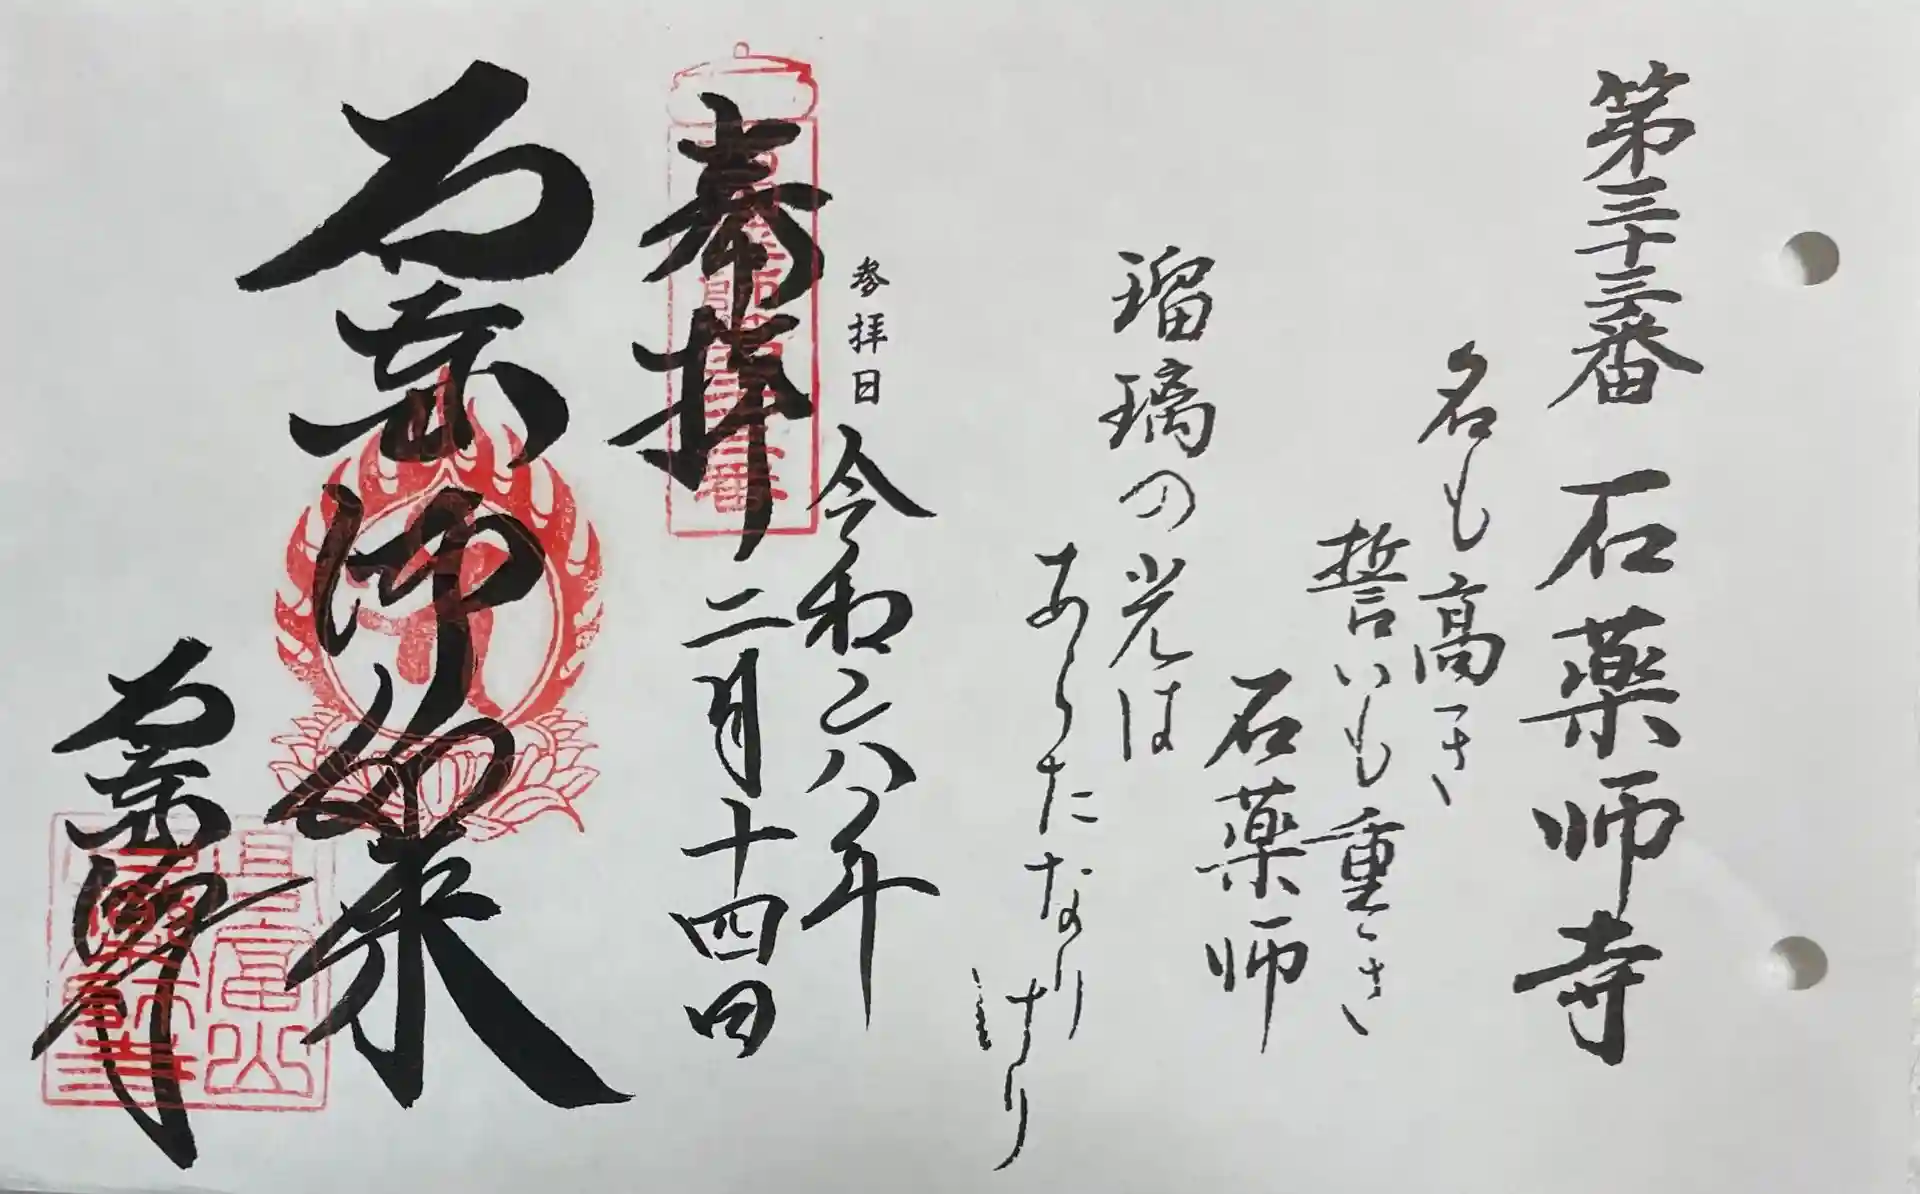 第三十三番 石薬師寺
名も高き
誓いも重き
石薬師
瑠璃の光は
あらたなりけり
参拝日 令和六年
奉拝 二月十四日
石薬師如来
石薬師寺
高富山
石薬師寺